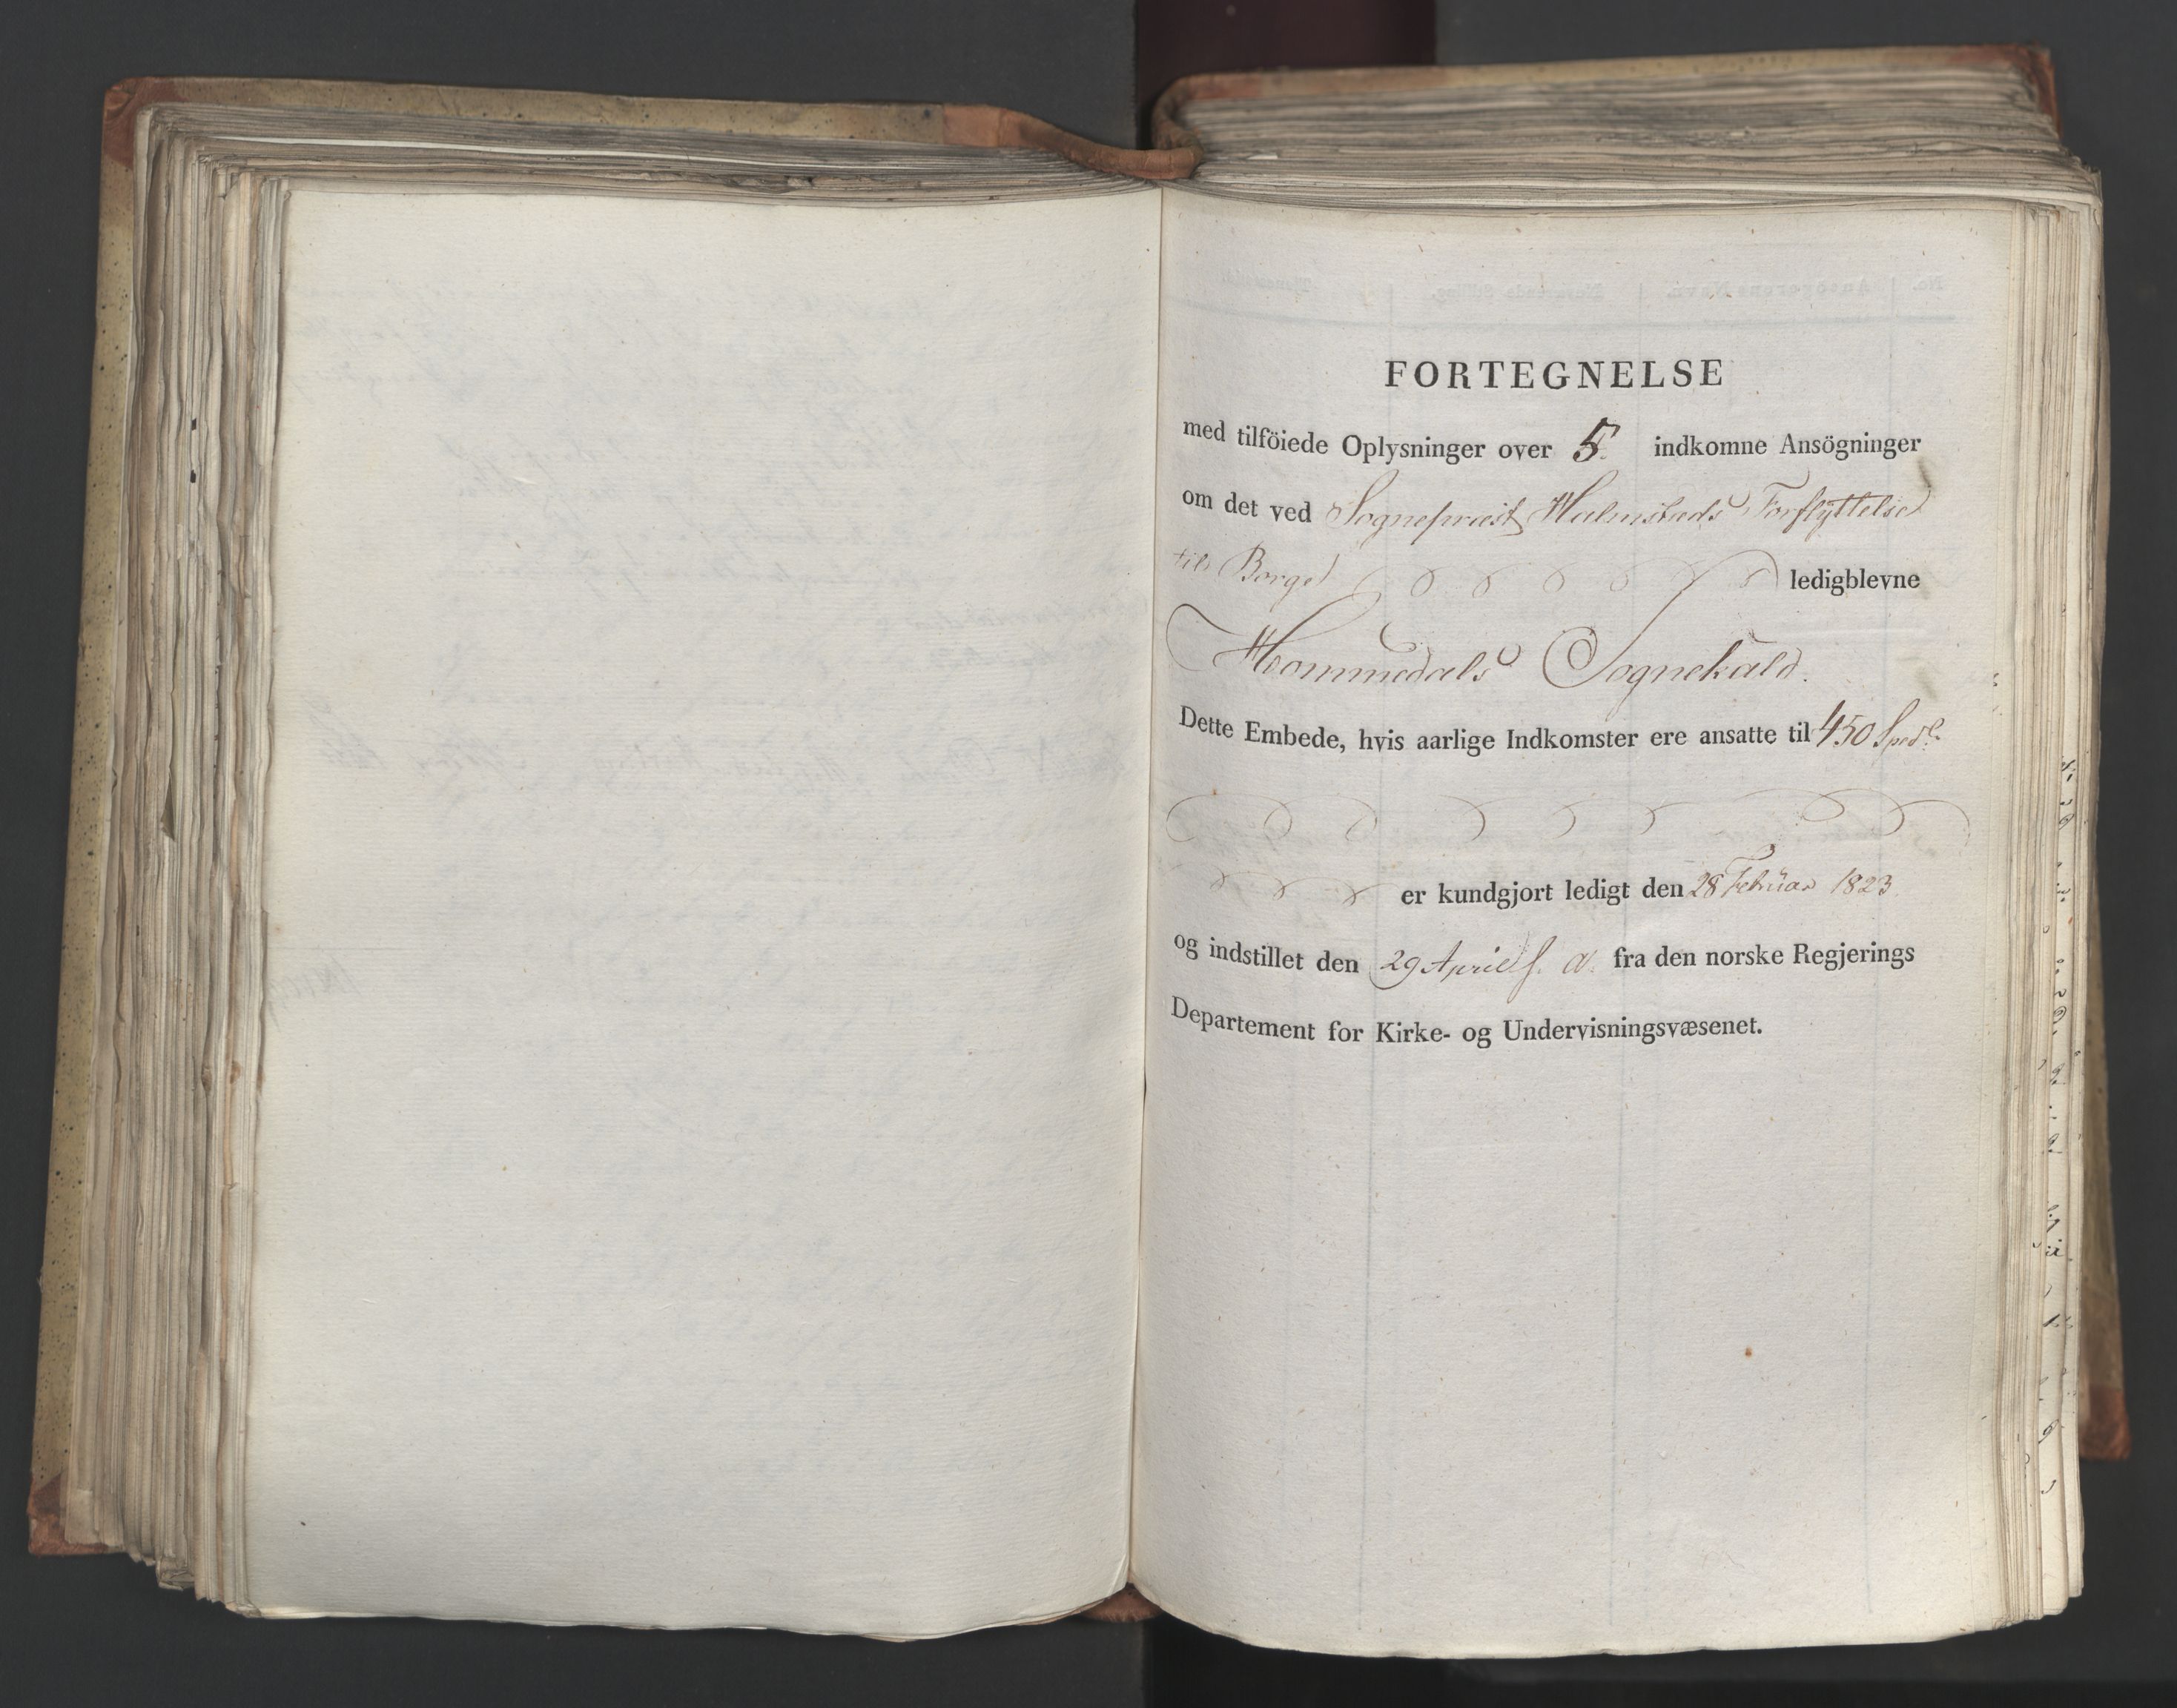 FORTEGNELSE
med tilföiede Oplysninger over 5. indkomne Ansögninger
om det ved Sognepræst Halmstads Forflÿttelse
til Borge ledigblevne
Hommedals Sognekald.
Dette Embede, hvis aarlige Indkomster ere ansatte til 450 Spedlr.
er kundgjort ledigt den 28 Februar 1823
og indstillet den 29 April s. a. fra den norske Regjerings
Departement for Kirke- og Undervisningsvæsenet.